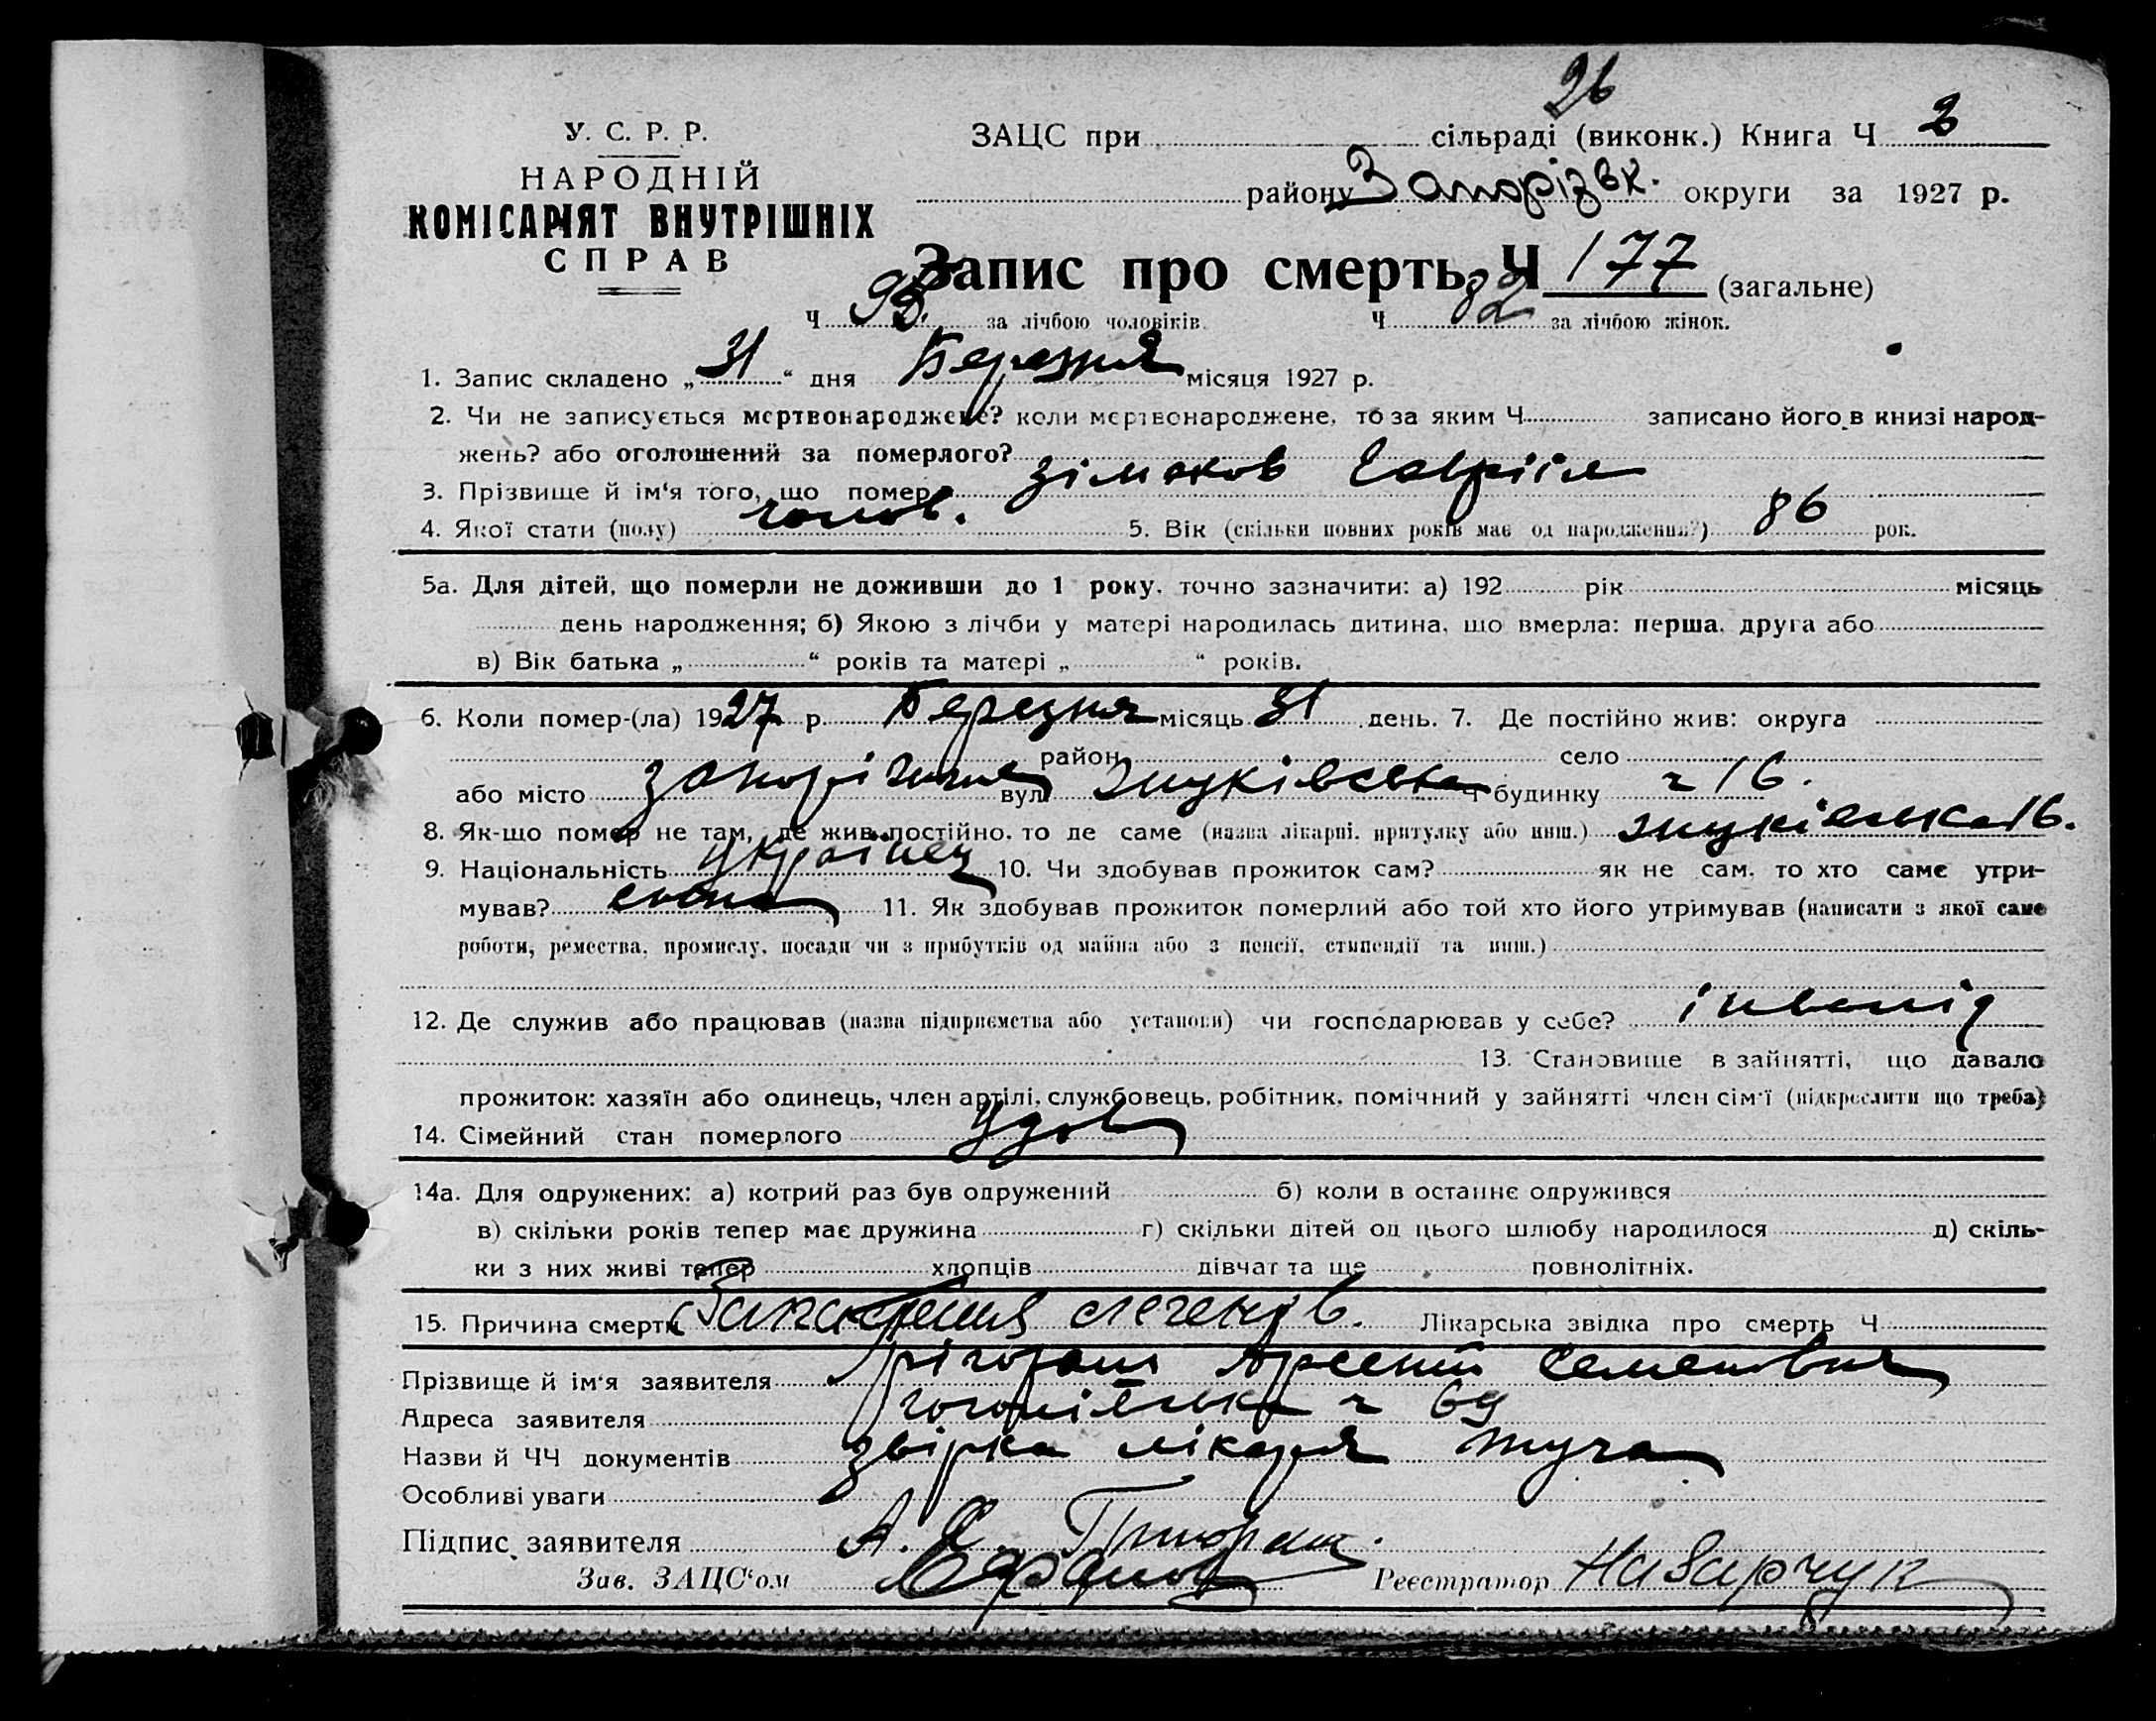 26
У. С. Р. Р.
НАРОДНІЙ
КОМІСАРІЯТ ВНУТРІШНІХ
СПРАВ
ЗАЦС при сільраді (виконк.) Книга Ч 3
району Запорізьк. округи за 1927 р.
Запис про смерть Ч 177 (загальне)
Ч 95. за лічбою чоловіків. Ч 82 за лічбою жінок.
1. Запис складено „31“ дня Березня місяця 1927 р.
2. Чи не записується мертвонароджене? коли мертвонароджене, то за яким Ч записано його в книзі народ-
жень? або оголошений за померлого?
3. Прізвище й ім'я того, що помер Зімаков Гавріїл
4. Якої стати (полу) чолов. 5. Вік (скільки повних років має од народження?) 86 рок.
5а. Для дітей, що померли не доживши до 1 року, точно зазначити: а) 192 рік місяць
день народження; б) Якою з лічби у матері народилась дитина, що вмерла: перша, друга або
в) Вік батька „ “ років та матері „ “ років.
6. Коли помер-(ла) 1927 р. Березня місяць 31 день. 7. Де постійно жив: округа
район село
або місто Запоріжжя вул. Жуківська ч будинку ч 16.
8. Як-що помер не там, де жив постійно, то де саме (назва лікарні, притулку або инш.) Жуківська 16.
9. Національність українец 10. Чи здобував прожиток сам? як не сам, то хто саме утри-
мував? 11. Як здобував прожиток померлий або той хто його утримував (написати з якої саме
роботи, ремества, промислу, посади чи з прибутків од майна або з пенсії, стипендії та инш.)
12. Де служив або працював (назва підприємства або установи) чи господарював у себе? інвалід
13. Становище в зайнятті, що давало
прожиток: хазяїн або одинець, член артілі, службовець, робітник, помічний у зайнятті член сім'ї (підкреслити що треба)
14. Сімейний стан померлого Удов
14а. Для одружених: а) котрий раз був одружений б) коли в останнє одружився
в) скільки років тепер має дружина г) скільки дітей од цього шлюбу народилося д) скіль-
ки з них живі тепер хлопців дівчат та ще повнолітніх.
15. Причина смерти Запалення легенів. Лікарська звідка про смерть Ч
Прізвище й ім'я заявителя Арсеній Семенович
Адреса заявителя ч 69
Назви й ЧЧ документів звірка лікаря
Особливі уваги
Підпис заявителя А. С.
Зав. ЗАЦС'ом Реєстратор Назарчук